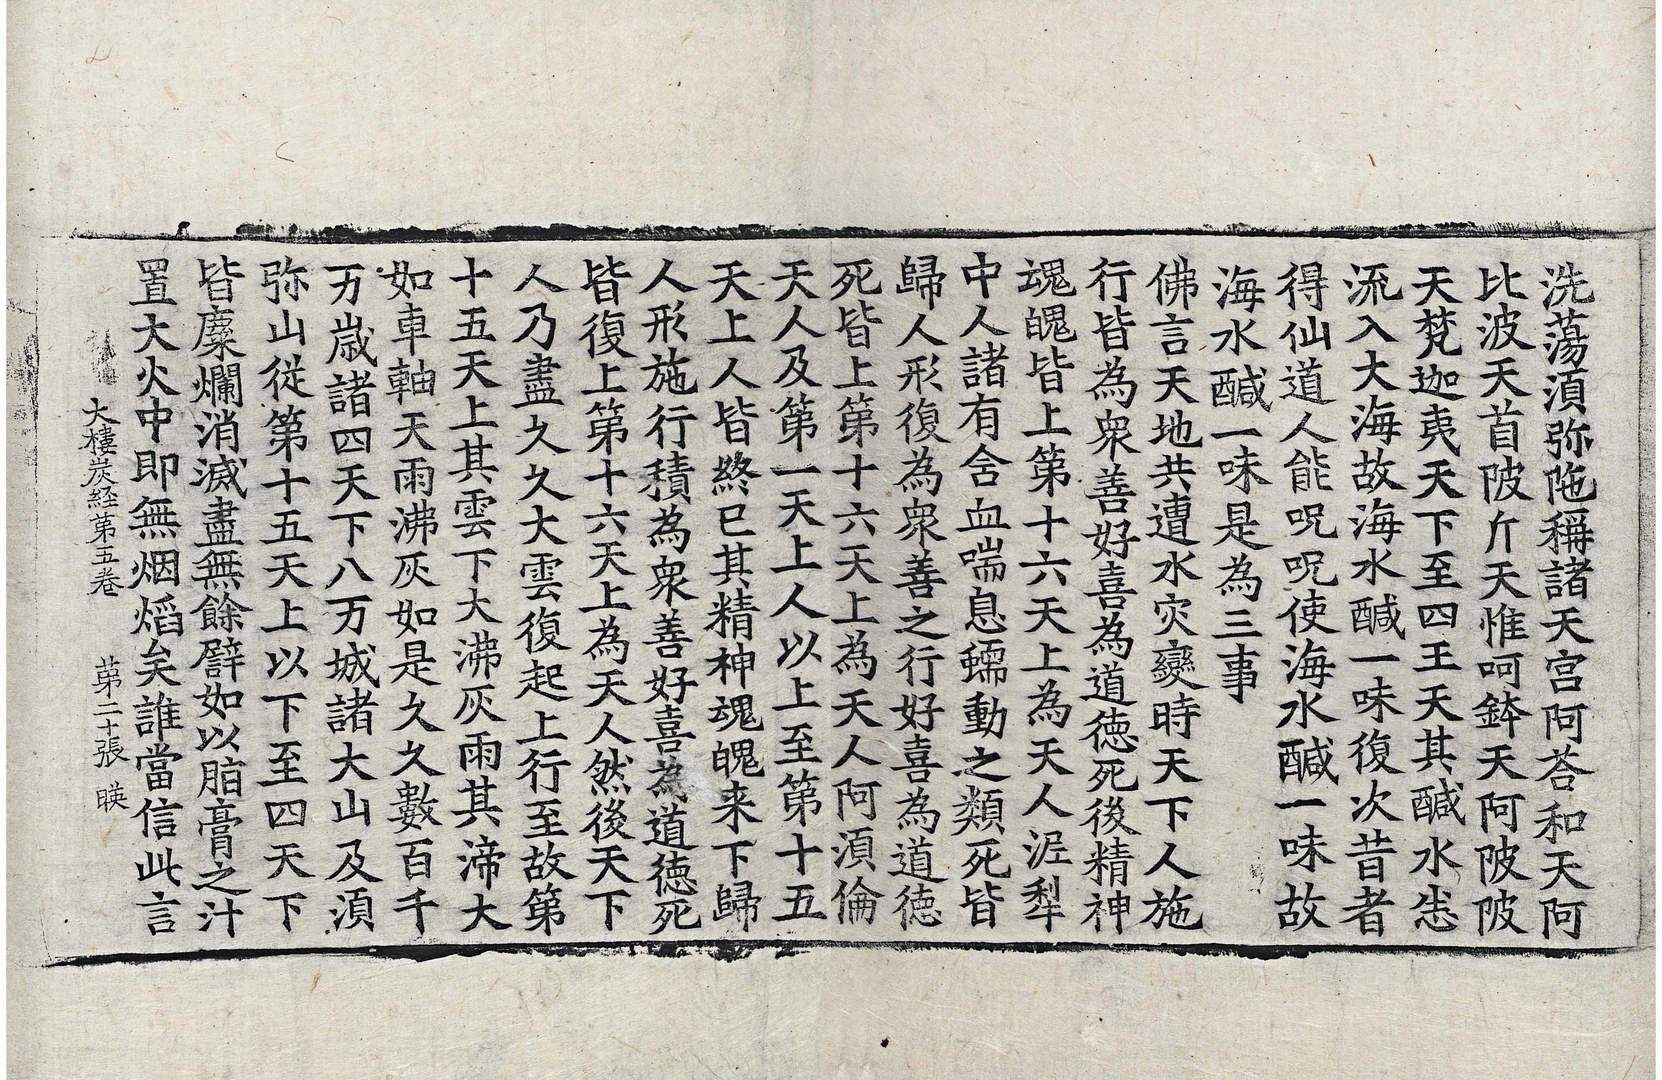 洗蕩湏弥陁稱諸天宮阿荅和天阿
比波天首陂斤天惟呵鉢天阿陂陂
天梵迦夷天下至四王天其醎水恚
流入大海故海水醎一味復次昔者
得仙道人能呪呪使海水醎一味故
海水醎一味是為三事
佛言天地共遭水灾變時天下人施
行皆為衆善好喜為道徳死後精神
魂魄皆上第十六天上為天人泥犁
中人諸有含血喘息蠕動之類死皆
歸人形復為衆善之行好喜為道徳
死皆上第十六天上為天人阿湏倫
天人及第一天上人以上至第十五
天上人皆終已其精神魂魄来下歸
人形施行積為衆善好喜為道徳死
皆復上第十六天上為天人然後天下
人乃盡久久大雲復起上行至故第
十五天上其雲下大沸灰雨其渧大
如車軸天雨沸灰如是久久數百千
万歳諸四天下八万城諸大山及湏
弥山従第十五天上以下至四天下
皆糜爛消滅盡無餘譬如以脂膏之汁
置大火中即無烟熖矣誰當信此言
大樓炭経第五卷　第二十張　暎